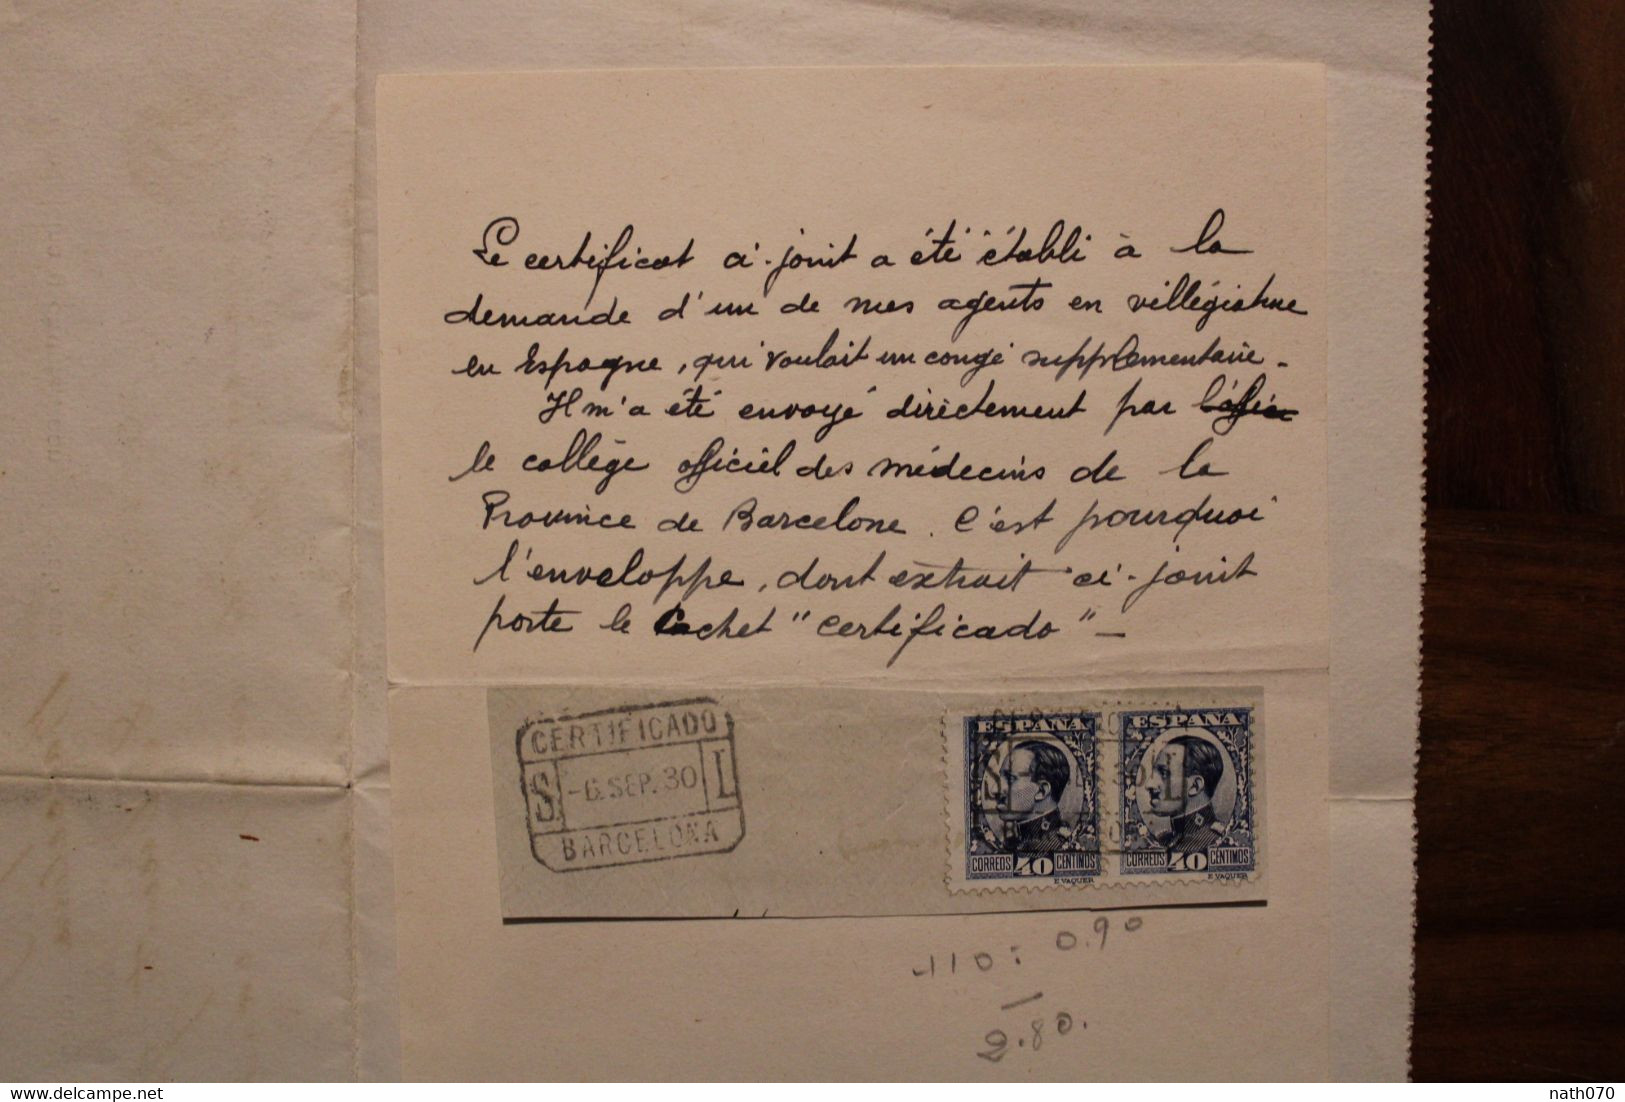 Le certificat ci-joint a été établi à la
demande d'un de mes agents en villégiature
en Espagne, qui voulait un congé supplémentaire -
Il m'a été envoyé directement par
le collège officiel des médecins de la
Province de Barcelone. C'est pourquoi
l'enveloppe, dont extrait ci-joint
porte le cachet "Certificado" -
CERTIFICADO
S. -6.SEP.30 L
BARCELONA
ESPAÑA ESPAÑA
CORREOS 40 CENTIMOS CORREOS 40 CENTIMOS
E. VAQUER E. VAQUER
110 : 0.90
2.80.
delcampe.net
nath070